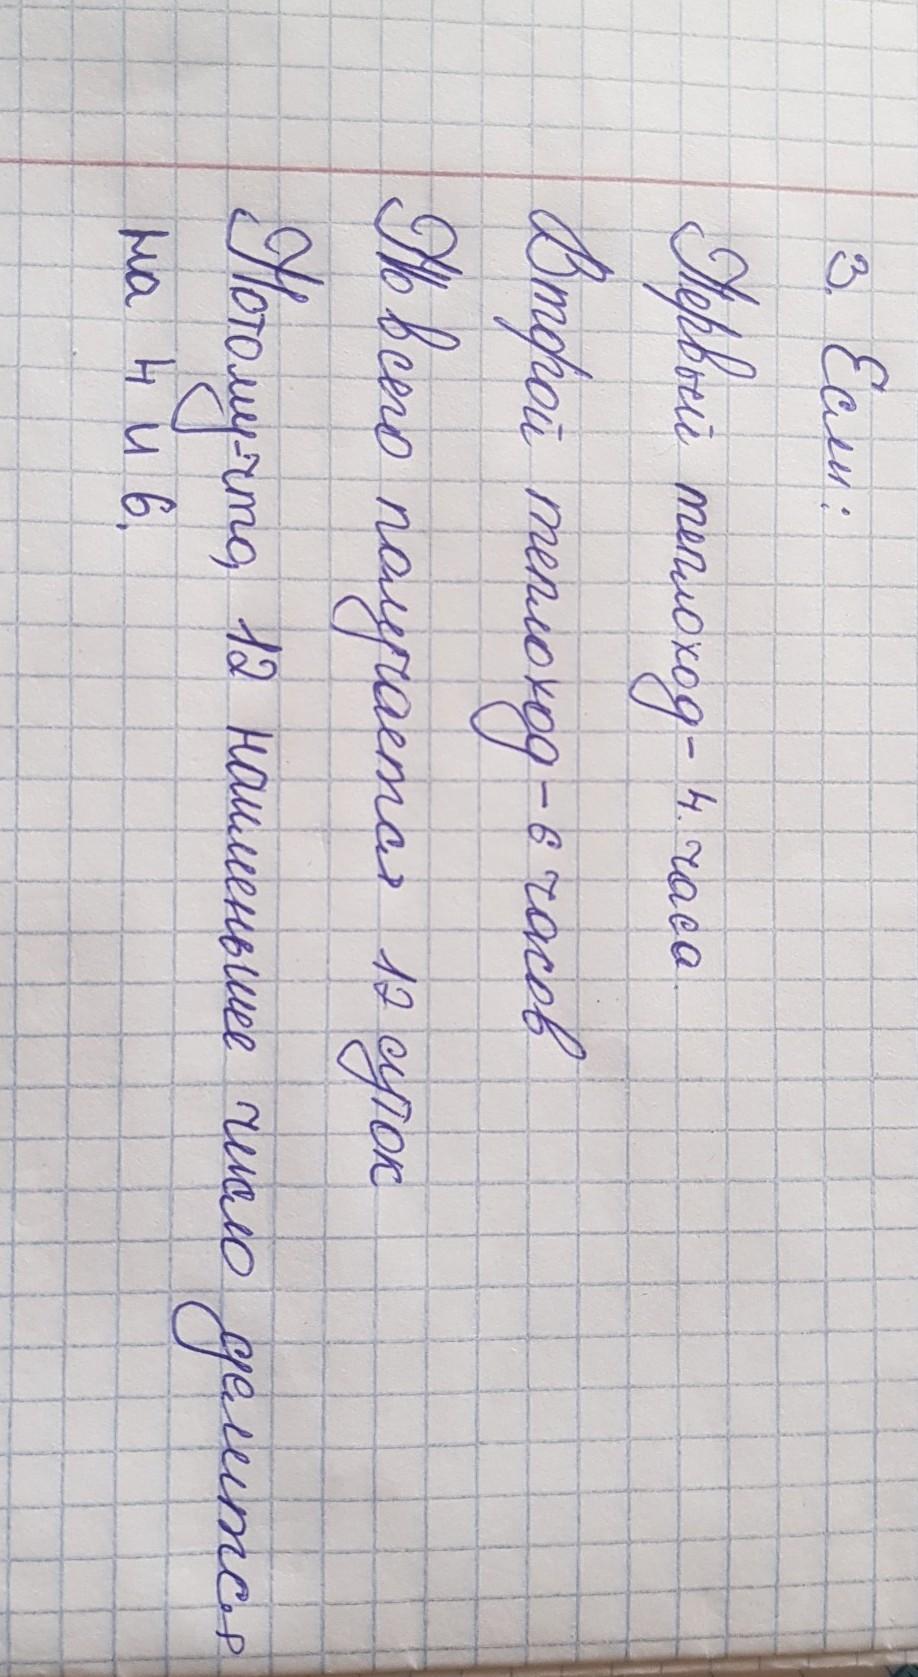 3. Если:
Первый теплоход - 4. часа
Второй теплоход - 6 часов
То всего получается 12 суток
Потому-что, 12 наименьшее число делится
на 4 и 6.